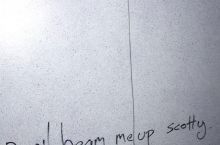 beam me up scotty